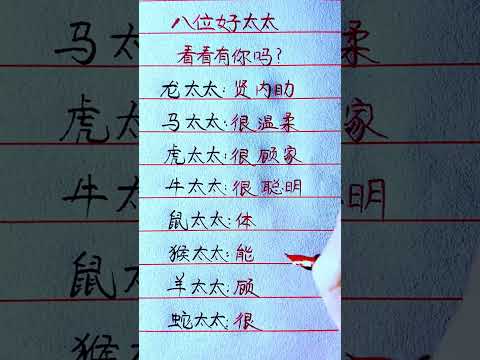 八位好太太
看看有你吗？
龙太太：贤内助
马太太：很温柔
虎太太：很顾家
牛太太：很聪明
鼠太太：体
猴太太：能
羊太太：顾
蛇太太：很